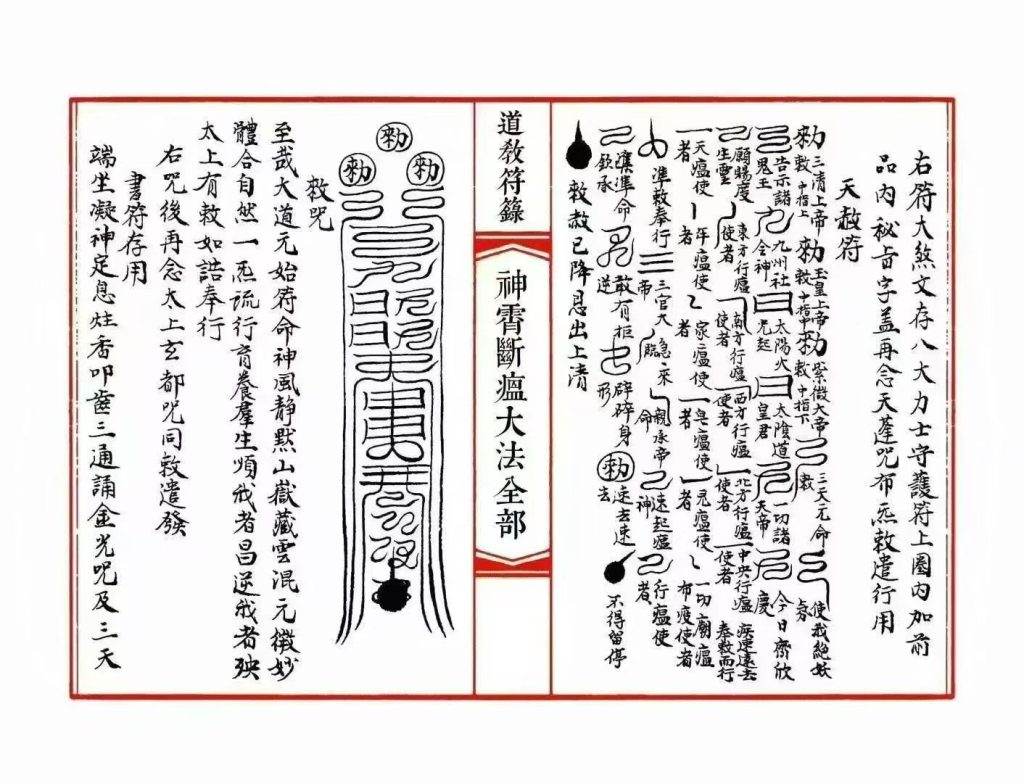 右符大煞文存八大力士守護符上圈內加前
品內秘旨字蓋再念天蓬咒布炁敕遣行用
天赦符
勑三清上帝敕中指上勑玉皇上帝敕中指中勑紫微大帝敕中指下三天元命敕使我絕妖氛
告示諸鬼王九州社令神曰太陽火光起曰太陰道皇君一切諸天帝今日齋欣慶
願賜度生靈東方行瘟使者南方行瘟使者西方行瘟使者北方行瘟使者中央行瘟使者疾速遠去奉敕而行
天瘟使者年瘟使者家瘟使者皂瘟使者瘟使者一切廟瘟布疫使者
準敕奉行三官大帝急來臨親承帝命速起瘟神行瘟使者
準命欽承敢有拒逆碎身形勑速去速去不得留停
敕赦已降恩出上清
道教符籙
神霄斷瘟大法全部
勑
勑
勑
敕咒
至哉大道元始符命神風靜默山嶽藏雲混元微妙
體合自然一炁流行育養羣生順我者昌逆我者殃
太上有敕如誥奉行
右咒後再念太上玄都咒同敕遣發
書符存用
端坐凝神定息炷香叩齒三通誦金光咒及三天